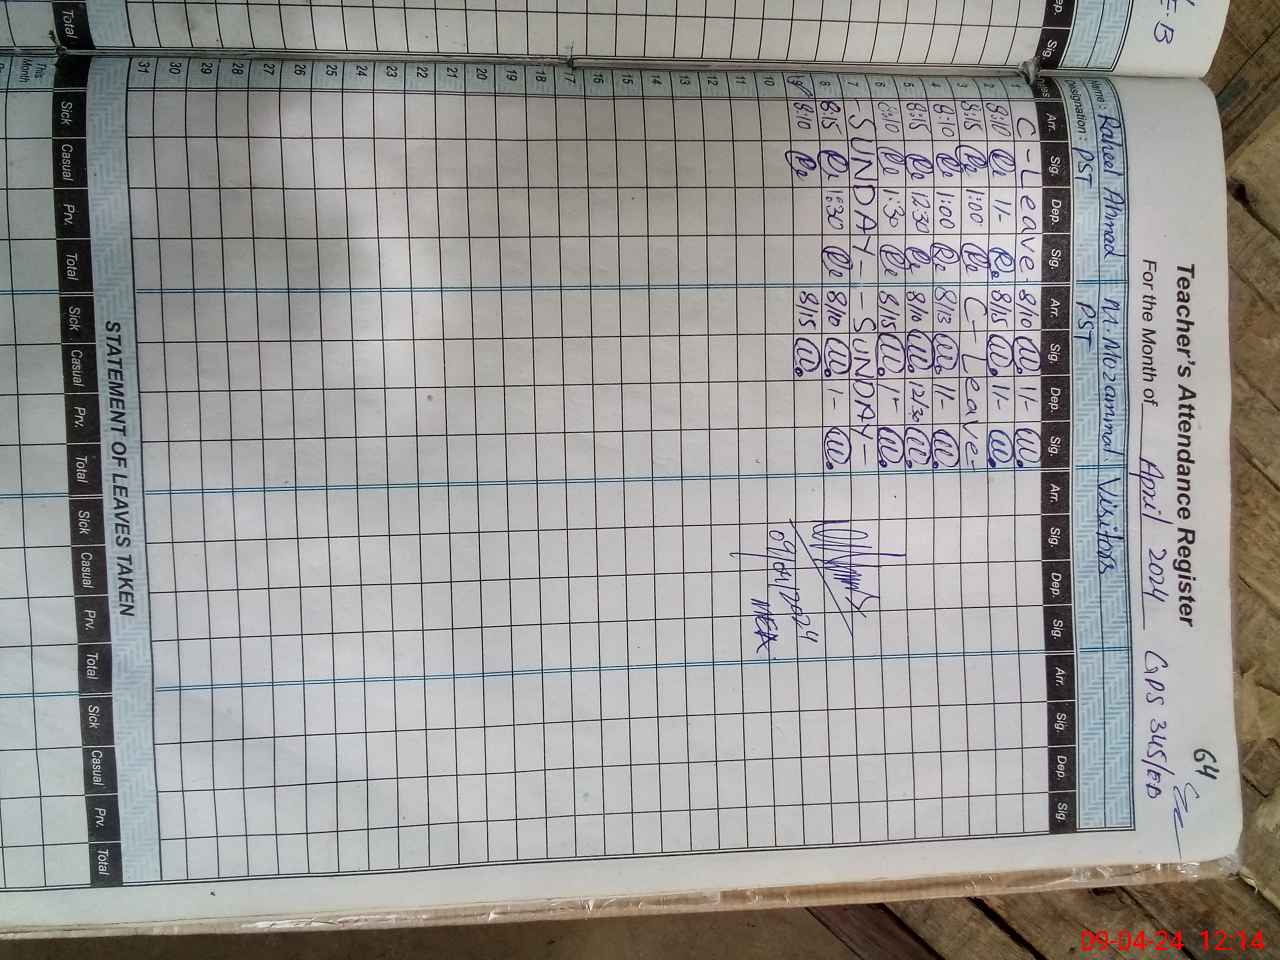 Teacher's Attendance Register
64
For the Month of April 2024 GPS 345/EB
E.B
Name: Raheel Ahmad M. Mozammal Visitors
Designation: PST PST
Dates Arr. Sig. Dep. Sig. Arr. Sig. Dep. Sig. Arr. Sig. Dep. Sig. Arr. Sig. Dep. Sig.
1 C-Leave 8/10 1/-
2 8:10 1/- 8/15 1/-
3 8:15 1:00 C-Leave-
4 8:10 1:00 8/13 1/-
5 8:15 12:30 8/10 12/30
6 8:10 1:30 8/15 1/-
7 -SUNDAY- -SUNDAY-
8 8:15 1:30 8/10 1/-
9 8:10 8/15
09/04/2024
MEA
10
11
12
13
14
15
16
17
18
19
20
21
22
23
24
25
26
27
28
29
30
31
STATEMENT OF LEAVES TAKEN
Sick Casual Prv. Total Sick Casual Prv. Total Sick Casual Prv. Total Sick Casual Prv. Total
This Month
Dep. Sig.
Total
09-04-24 12:14